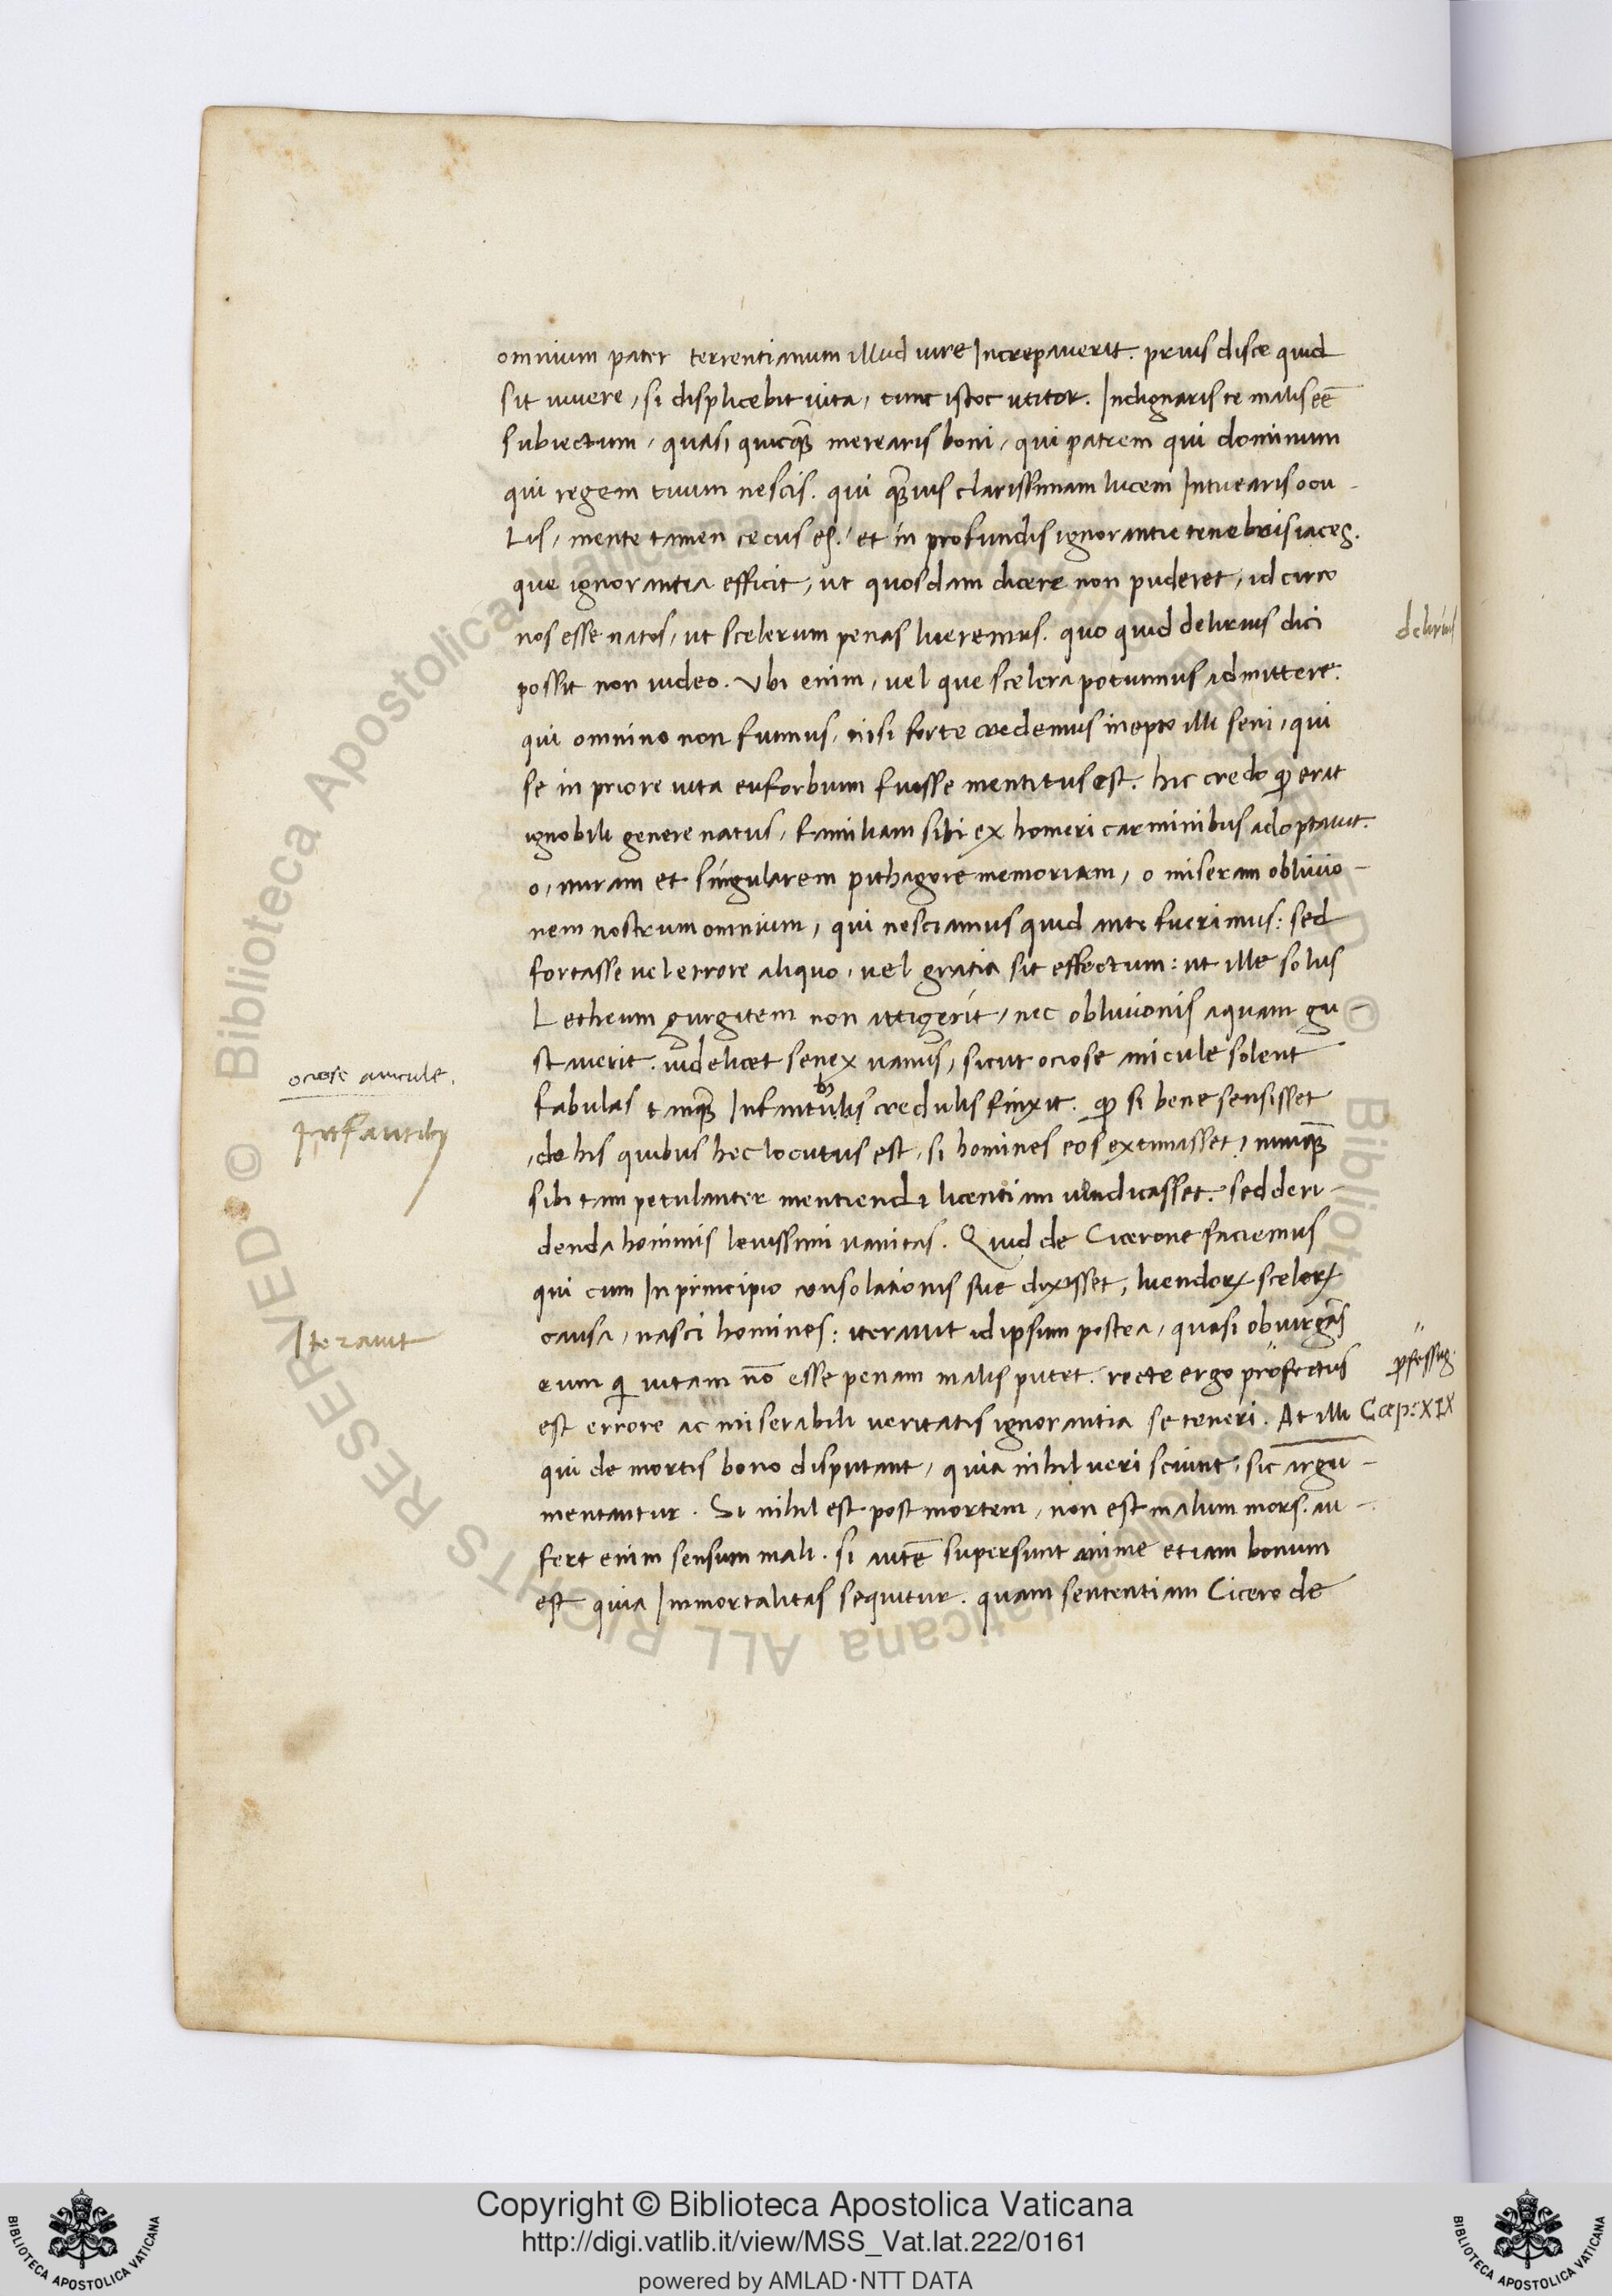 omnium pater terrentianum illud iure Increpauerit. prius disce quid
sit uiuere, si displicebit uita, tunc istoc utitor. Indignaris te malis eē
subiectum, quasi quicq̃ merearis boni, qui patrem qui dominum
qui regem tuum nescis. qui q̃uis clarissimam lucem Intuearis ocu-
Lis, mente tamen cecus es. et in profundis ignorantie tenebris iaces.
que ignorantia efficit, ut quosdam dicere non puderet, id circo
nos esse natos, ut scelerum penas lueremus. quo quid delirius dici
delirius
possit non uideo. Vbi enim, uel que scelera potuimus admittere.
qui omnino non fuimus, nisi forte credemus inepto illi seni, qui
se in priore uita euforbum fuisse mentitus est. hic credo ꝙ erit
ignobili genere natus, familiam sibi ex homeri carminibus adoptauit.
o, miram et singularem pithagore memoriam, o miseram obliuio-
nem nostrum omnium, qui nesciamus quid ante fuerimus: sed
fortasse uel errore aliquo, uel gratia sit effectum: ut ille solus
Letheum gurgitem non attigerit, nec obliuionis aquam gu-
stauerit. uidelicet senex uanus, sicut ociose anicule solent
ociose anicule.
fabulas tamq̃ Infantulis credulis finxit. ꝙ si bene sensisset
Infantibꝫ
de his quibus hec locutus est, si homines eos extimasset, nunq̃
sibi tam petulanter mentiendi licentiam uindicasset. sed deri-
denda hominis leuissimi uanitas. Quid de Cicerone faciemus
qui cum In principio consolationis sue dixisset, luendoꝝ sceleꝝ
causa, nasci homines: iterauit id ipsum postea, quasi obiurgās
Iterauit
eum q̇ uitam nō esse penam malis putet. recte ergo profectus
ꝓfessus.
est errore ac miserabili ueritatis ignorantia se teneri. At illi
Cap: XIX
qui de mortis bono disputant, quia nihil ueri sciunt, sic argu-
mentantur. Si nihil est post mortem, non est malum mors. au-
fert enim sensum mali. si autē supersunt anime etiam bonum
est quia Immortalitas sequitur. quam sententiam Cicero de
Copyright © Biblioteca Apostolica Vaticana
http://digi.vatlib.it/view/MSS_Vat.lat.222/0161
powered by AMLAD·NTT DATA
BIBLIOTECA APOSTOLICA VATICANA
BIBLIOTECA APOSTOLICA VATICANA